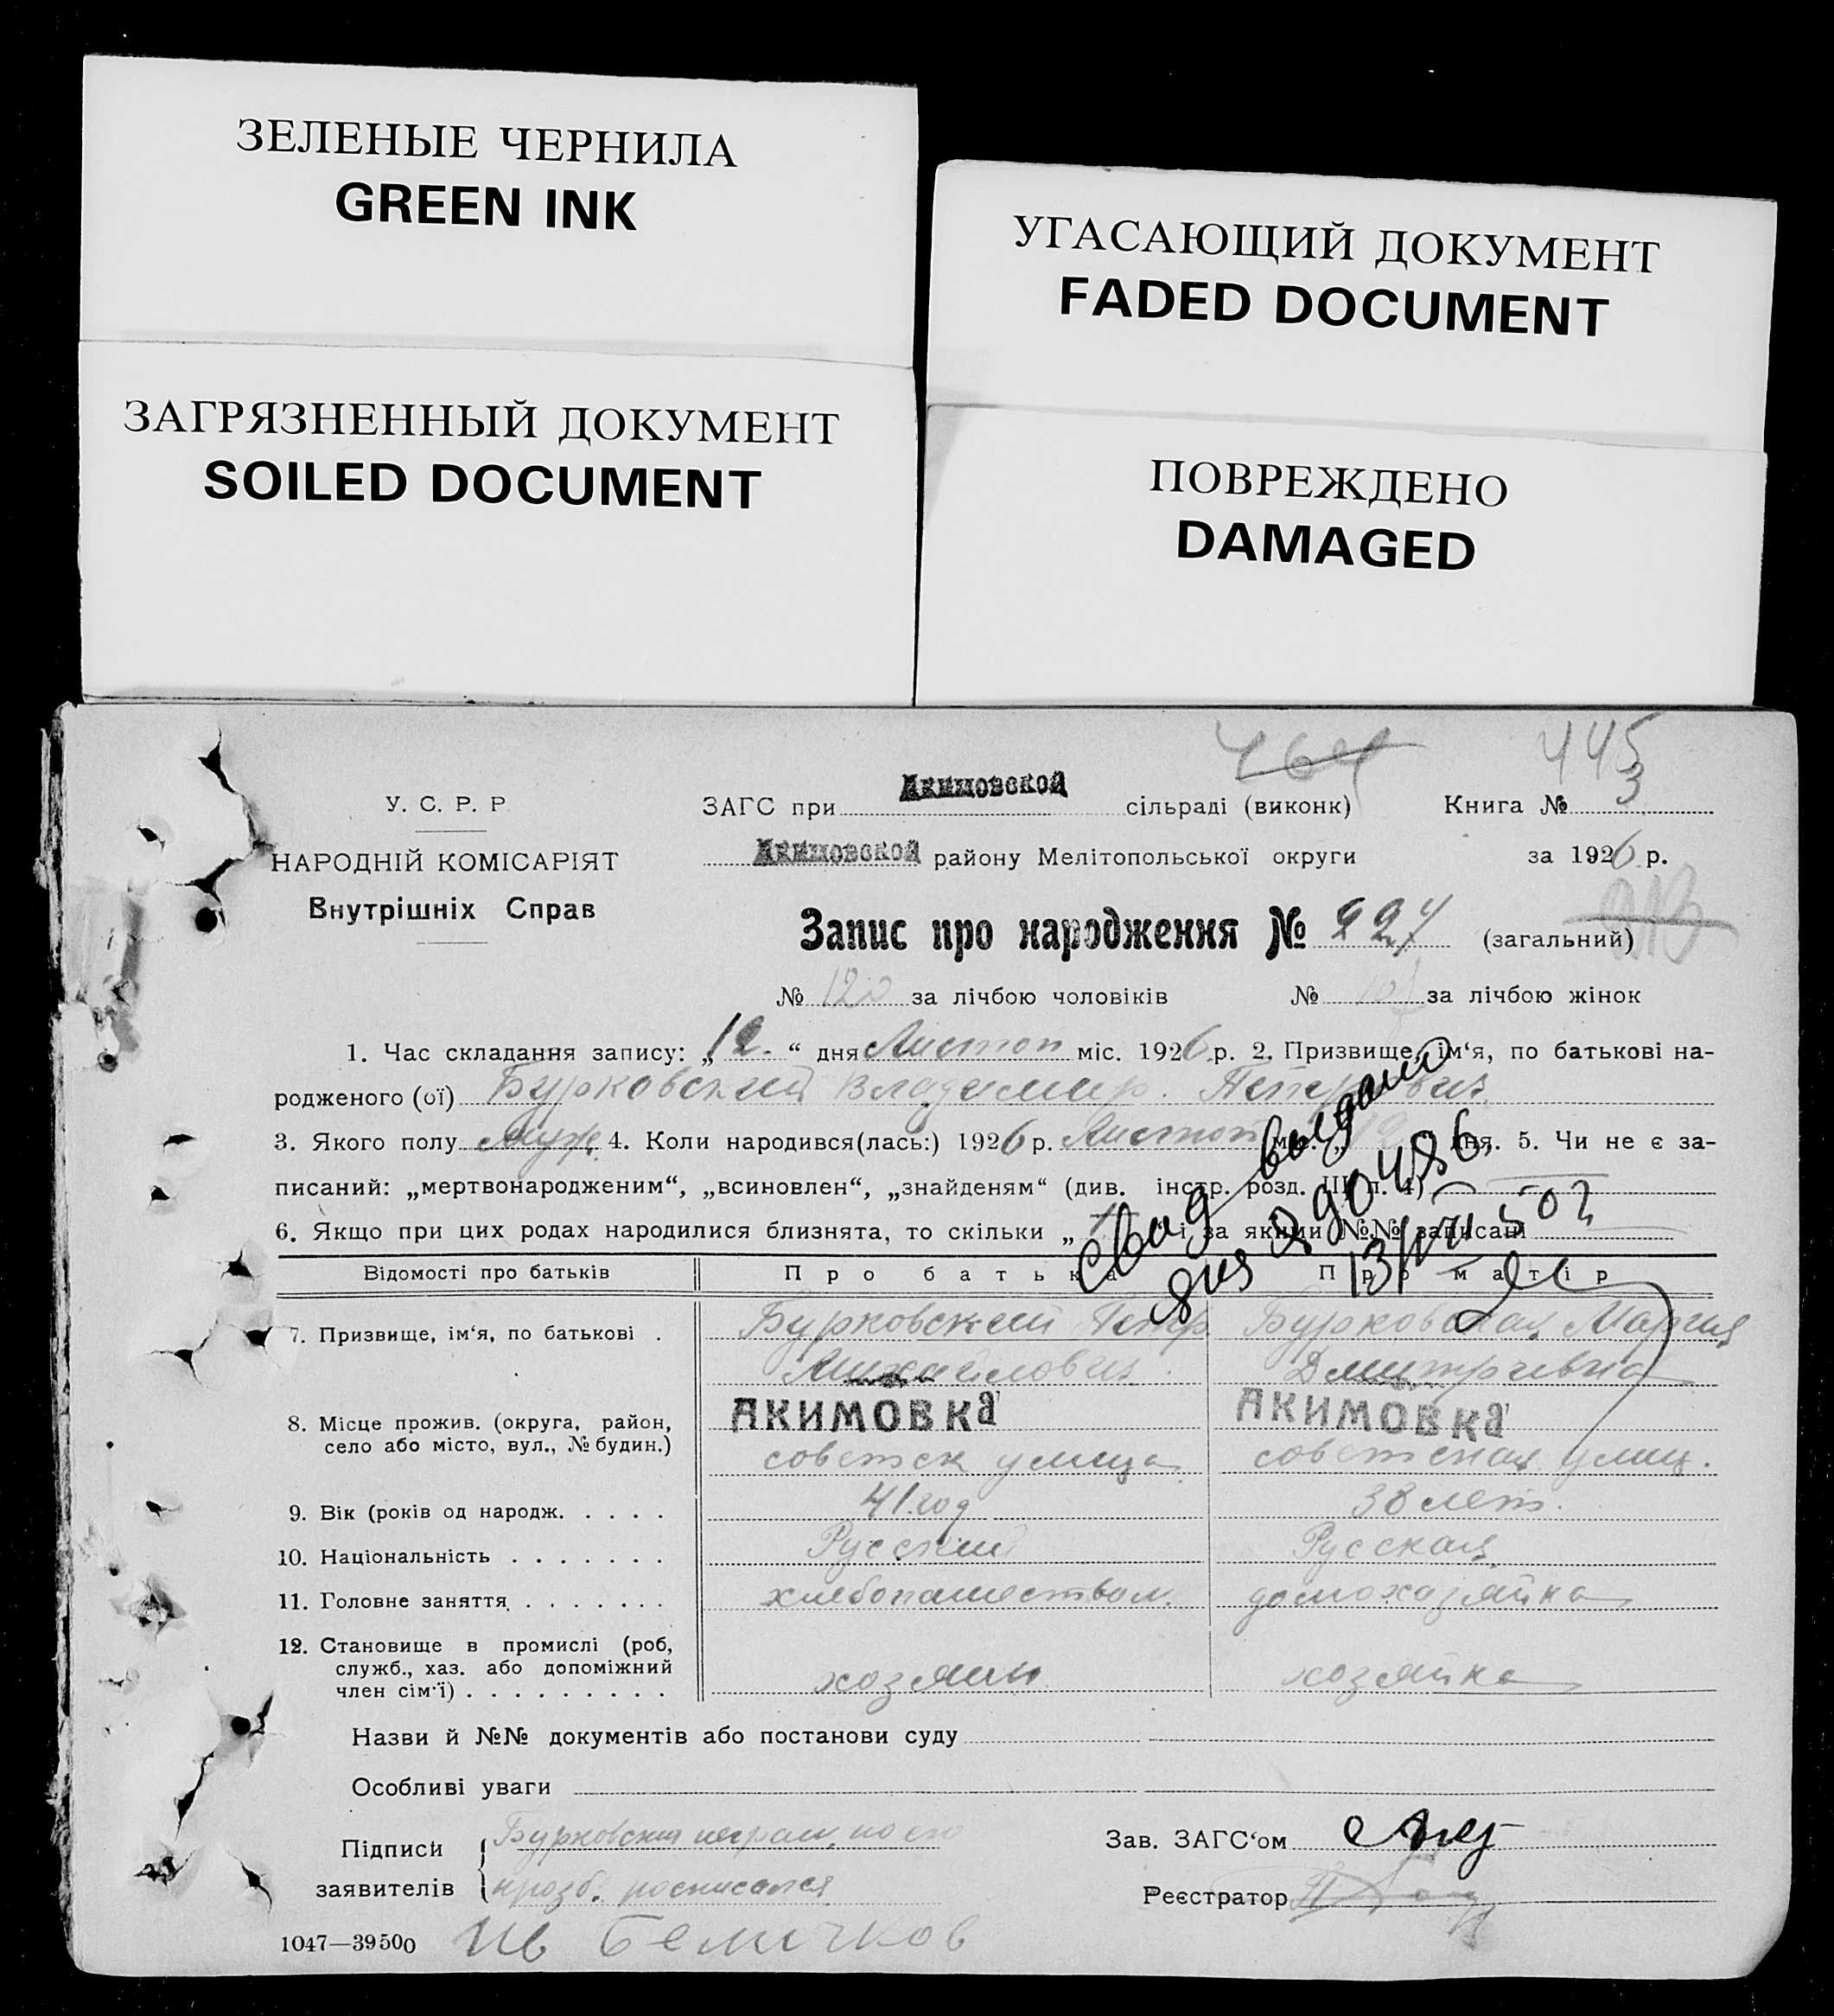 ЗЕЛЕНЫЕ ЧЕРНИЛА
GREEN INK
ЗАГРЯЗНЕННЫЙ ДОКУМЕНТ
SOILED DOCUMENT
УГАСАЮЩИЙ ДОКУМЕНТ
FADED DOCUMENT
ПОВРЕЖДЕНО
DAMAGED
464 445
У. С. Р. Р. ЗАГС при Акимовской сільраді (виконк) Книга № 3
НАРОДНІЙ КОМІСАРІЯТ Акимовской району Мелітопольської округи за 1926 р.
Внутрішніх Справ
Запис про народження № 227 (загальний)
№ 120 за лічбою чоловіків № за лічбою жінок
1. Час складання запису: „12.“ дня Листоп міс. 1926 р. 2. Призвище, ім‘я, по батькові на-
родженого (ої) Бурковский Владимир Петрович
3. Якого полу муж. 4. Коли народився(лась:) 1926 р. Листоп міс. „12“ дня. 5. Чи не є за-
писаний: „мертвонародженим“, „всиновлен“, „знайденям“ (див. інстр. розд. III п. 4)
6. Якщо при цих родах народилися близнята, то скільки „ “ і за якими №№ записані
Свид выдано
Відомості про батьків Про батька Про матір
7. Призвище, ім‘я, по батькові . Бурковский Петр Бурковская Мария
Михайлович Дмитриевна
8. Місце прожив. (округа, район, АКИМОВКА АКИМОВКА
село або місто, вул., № будин.) советск улица советская улиц.
9. Вік (років од народж. . . . . 41 год 38 лет.
10. Національність . . . . . . . Русский Русская
11. Головне заняття . . . . . . . хлебопашеством. домохозяйка
12. Становище в промислі (роб,
служб., хаз. або допоміжний хозяин хозяйка
член сім‘ї) . . . . . . . . .
Назви й №№ документів або постанови суду
Особливі уваги
Підписи Бурковский неграм, по его Зав. ЗАГС‘ом
заявителів прозб. росписался Реєстратор
1047—39500 Ив Беличков